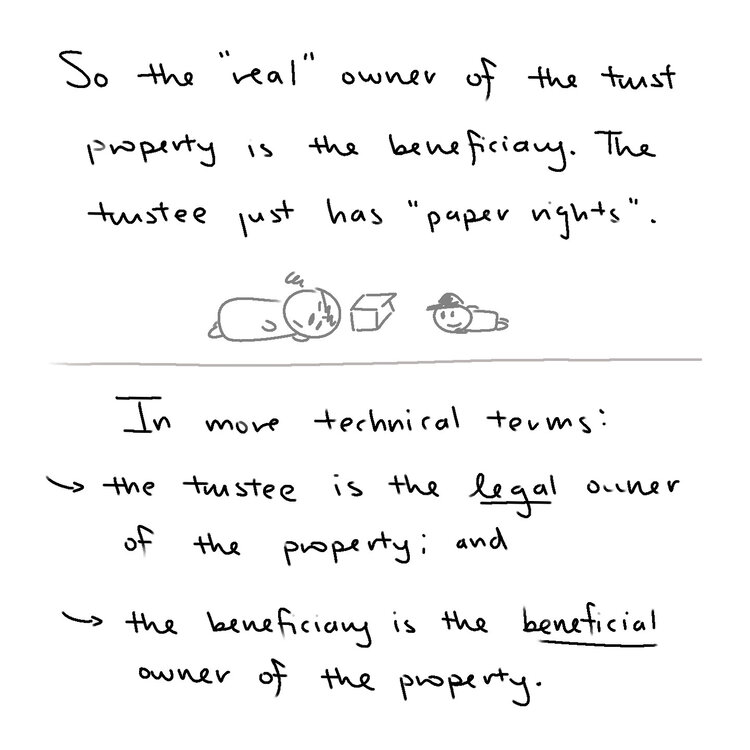 So the "real" owner of the trust
property is the beneficiary. The
trustee just has "paper rights".
In more technical terms:
→ the trustee is the legal owner
of the property; and
→ the beneficiary is the beneficial
owner of the property.